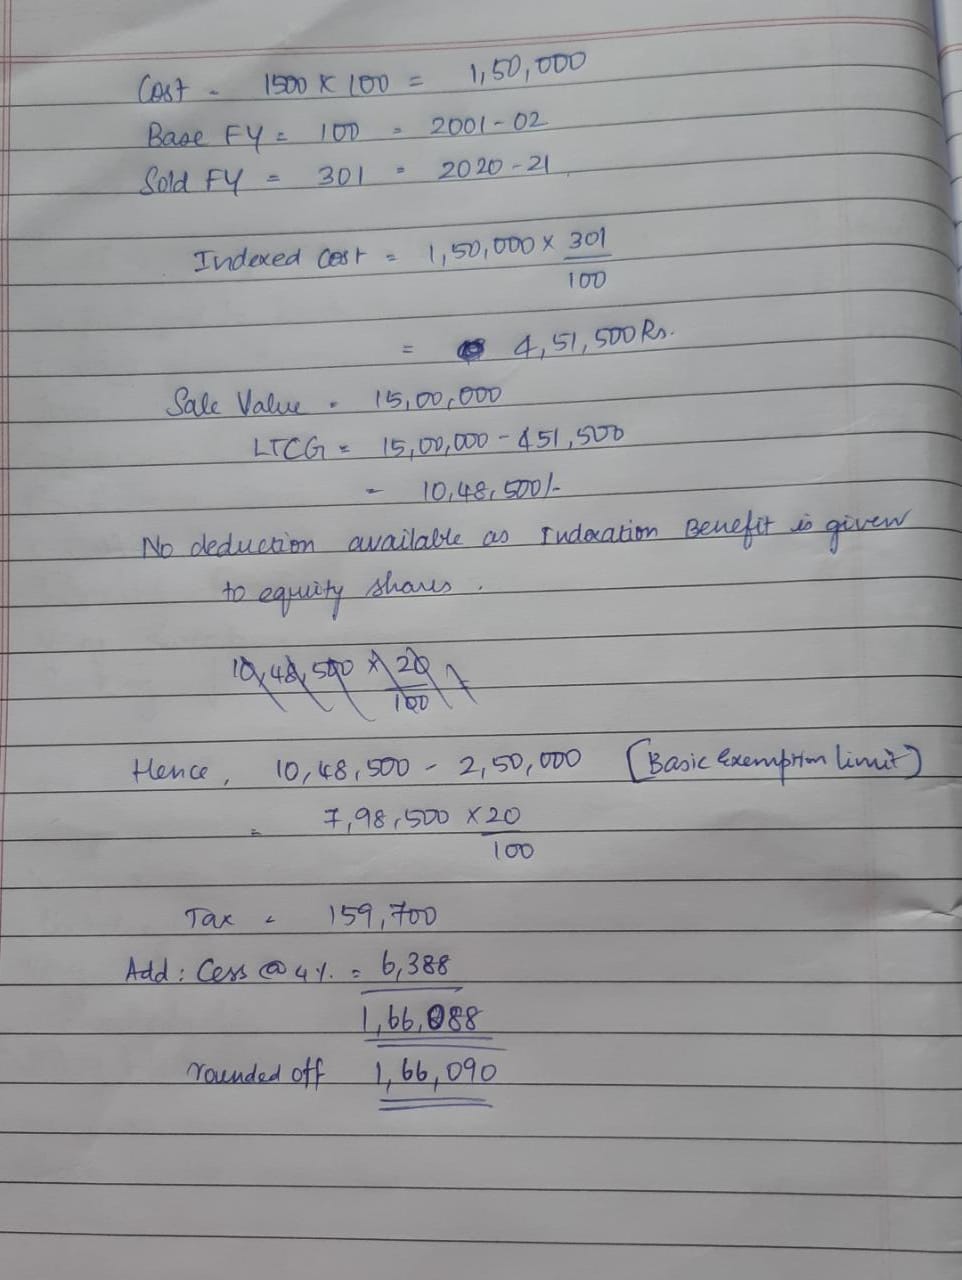 Cost - 1500 x 100 = 1,50,000
Base FY = 100 = 2001-02
Sold FY = 301 = 2020-21
Indexed cost = 1,50,000 x 301
100
= 4,51,500 Rs.
Sale Value = 15,00,000
LTCG = 15,00,000 - 451,500
= 10,48,500/-
No deduction available as Indexation Benefit is given
to equity shares.
10,48,500 x 20
100
Hence, 10,48,500 - 2,50,000 [Basic Exemption limit]
= 7,98,500 x 20
100
Tax = 159,700
Add: Cess @ 4%. = 6,388
1,66,088
rounded off 1,66,090